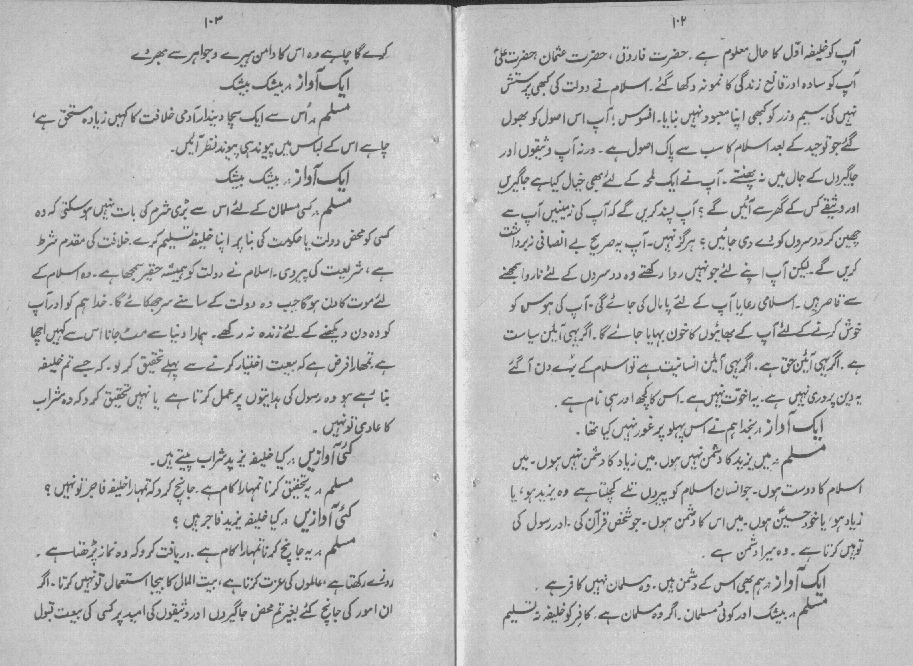 ۱۰۲
آپ کو خلیفہ اوّل کا حال معلوم ہے۔ حضرت فاروق، حضرت عثمان، حضرت علیؑ
آپ کو سادہ اور قانع زندگی کا نمونہ دکھا گئے۔ اسلام نے دولت کی کبھی پرستش
نہیں کی۔ سیم و زر کو کبھی اپنا معبود نہیں بنایا۔ افسوس! آپ اس اصول کو بھول
گئے جو توحید کے بعد اسلام کا سب سے پاک اصول ہے۔ ورنہ آپ وثیقوں اور
جاگیروں کے جال میں نہ پھنستے۔ آپ نے ایک لمحہ کے لئے بھی خیال کیا ہے جاگیریں
اور وثیقے کس کے گھر سے آئیں گے؟ آپ پسند کریں گے کہ آپ کی زمینیں آپ سے
چھین کر دوسروں کو دے دی جائیں؟ ہرگز نہیں۔ آپ یہ صریح بے انصافی نہ برداشت
کریں گے۔ لیکن آپ اپنے لئے جو نہیں روا رکھتے وہ دوسروں کے لئے ناروا سمجھنے
سے قاصر ہیں۔ اسلامی رعایا آپ کے لئے پامال کی جائے گی۔ آپ کی ہوس کو
خوش کرنے کے لئے آپ کے بھائیوں کا خون بہایا جائے گا۔ اگر یہی آئین سیاست
ہے۔ اگر یہی آئین حق ہے۔ اگر یہی آئین انسانیت ہے تو اسلام کے بُرے دن آگئے
یہ دین پروری نہیں ہے۔ یہ اخوّت نہیں ہے۔ اس کا کچھ اور ہی نام ہے۔
ایک آواز۔ بخدا ہم نے اس پہلو پر غور نہیں کیا تھا۔
مسلم۔ میں یزید کا دشمن نہیں ہوں، میں زیاد کا دشمن نہیں ہوں۔ میں
اسلام کا دوست ہوں۔ جو انسان اسلام کو پیروں تلے کچلتا ہے وہ یزید ہو، یا
زیاد ہو، یا خود حسینؑ ہوں۔ میں اس کا دشمن ہوں۔ جو شخص قرآن کی۔ اور رسول کی
توہین کرتا ہے۔ وہ میرا دشمن ہے۔
ایک آواز۔ ہم بھی اس کے دشمن ہیں۔ وہ مسلمان نہیں کافر ہے۔
مسلم۔ بیشک اور کوئی مسلمان۔ اگر وہ مسلمان ہے۔ کافر کو خلیفہ نہ تسلیم
۱۰۳
کرے گا چاہے وہ اس کا دامن ہیرے و جواہر سے بھر دے
ایک آواز۔ بیشک بیشک
مسلم۔ اُس سے ایک سچا دیندار آدمی خلافت کا کہیں زیادہ مستحق ہے،
چاہے اس کے لباس میں پیوند ہی پیوند نظر آئیں۔
ایک آواز۔ بیشک بیشک
مسلم۔ کسی مسلمان کے لئے اس سے بڑی شرم کی بات نہیں ہوسکتی کہ وہ
کسی کو محض دولت یا حکومت کی بنا پر اپنا خلیفہ تسلیم کرے۔ خلافت کی مقدم شرط
ہے، شریعت کی پیروی۔ اسلام نے دولت کو ہمیشہ حقیر سمجھا ہے۔ وہ اسلام کے
لئے موت کا دن ہوگا جب وہ دولت کے سامنے سر جھکائے گا۔ خدا ہم کو اور آپ
کو وہ دن دیکھنے کے لئے زندہ نہ رکھے۔ ہمارا دنیا سے مٹ جانا اس سے کہیں اچھا
ہے۔ تمہارا فرض ہے کہ بیعت اختیار کرنے سے پہلے تحقیق کر لو۔ کہ جسے تم خلیفہ
بنا رہے ہو وہ رسول کی ہدایتوں پر عمل کرتا ہے یا نہیں تحقیق کرو کہ وہ شراب
کا عادی تو نہیں۔
کئی آوازیں۔ کیا خلیفہ یزید شراب پیتے ہیں۔
مسلم۔ یہ تحقیق کرنا تمہارا کام ہے۔ جانچ کرو کہ تمہارا خلیفہ فاجر تو نہیں؟
کئی آوازیں۔ کیا خلیفہ یزید فاجر ہیں؟
مسلم۔ یہ جانچ کرنا تمہارا کام ہے۔ دریافت کرو کہ وہ نماز پڑھتا ہے۔
روزے رکھتا ہے، عالموں کی عزت کرتا ہے، بیت المال کا بیجا استعمال تو نہیں کرتا۔ اگر
ان امور کی جانچ کئے بغیر تم محض جاگیروں اور وثیقوں کی امید پر کسی کی بیعت قبول